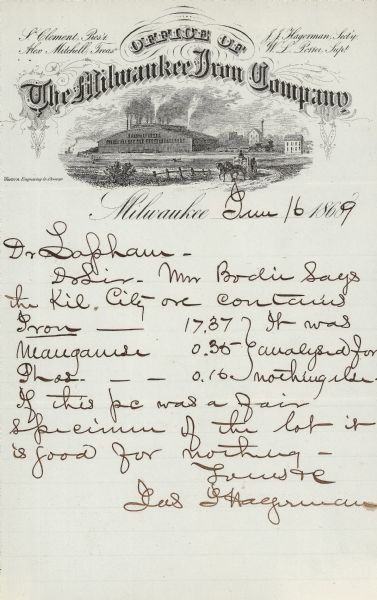 St Clement, Pres't
Alex Mitchell, Treas
J. J. Hagerman, Sect'y
W. L. Porter, Supt
OFFICE OF
The Milwaukee Iron Company
Western Engraving Co Chicago
Milwaukee June 16 1869
Dr Lapham -
Dr Sir - Mr Bodie says
the Kil. City ore contains
Iron — 17.37 } It was
Manganese 0.35 } analysed for
Phos. - - 0.16 } nothing else -
If this pc was a fair
specimen of the lot it
is good for nothing -
Yours &c
Jas J Hagerman